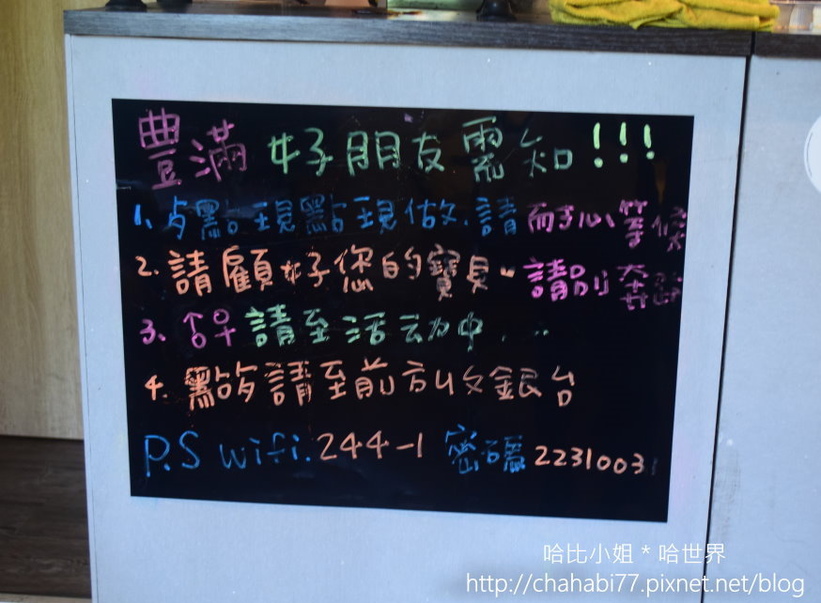 豐滿 好朋友需知!!!
1. 歺點現點現做.請耐心等候
2. 請顧好您的寶貝。請別奔跑
3. 請至活动中...
4. 點歺請至前方收銀台
P.S wifi. 244-1 密碼 2231003
哈比小姐 * 哈世界
http://chahabi77.pixnet.net/blog